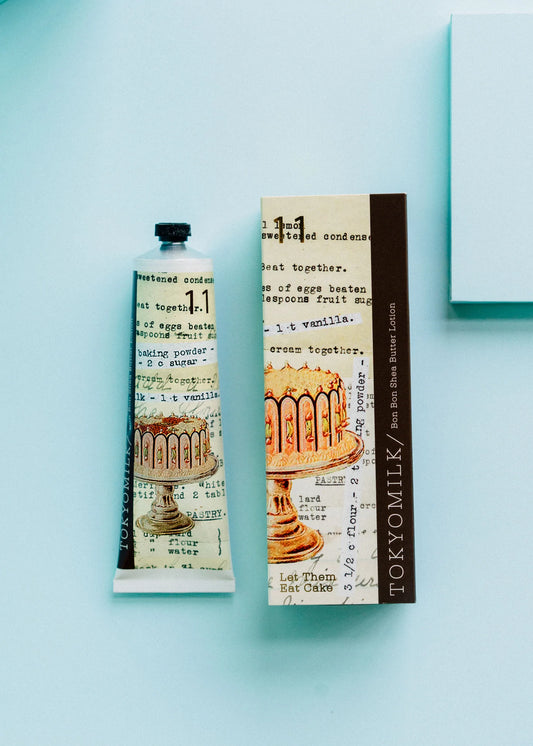 sweetened condens
11
eat together.
s of eggs beaten
aspoons fruit sug
baking powder -
- 2 c sugar -
cream together.
lk - 1 t vanilla.
White
and 2 tabl
PASTRY.
cup lard }
" flour
" water }
TOKYOMILK/
1 lemon
11
sweetened condense
Beat together.
es of eggs beaten
lespoons fruit sug
- 1 t vanilla.
cream together.
PASTRY
lard
flour
water
3 1/2 c flour - 2 t
ng powder -
Let Them
Eat Cake
TOKYOMILK/
Bon Bon Shea Butter Lotion